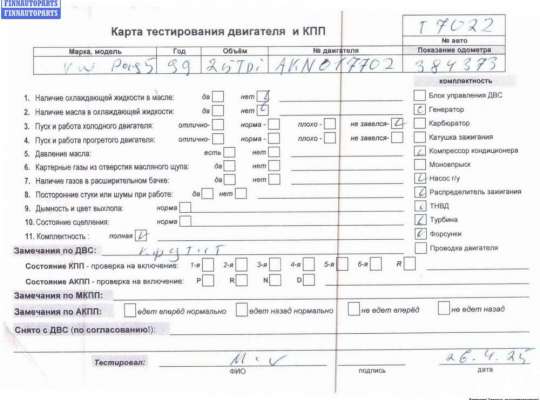 FINNAUTOPARTS
FINNAUTOPARTS
Карта тестирования двигателя и КПП
T 7022
№ авто
Марка, модель Год Объём № двигателя Показание одометра
VW Pas5 99 25TDi AKN017702 384373
комплектность
1. Наличие охлаждающей жидкости в масле: да нет
2. Наличие масла в охлаждающей жидкости: да нет
3. Пуск и работа холодного двигателя: отлично- норма - плохо - не завелся-
4. Пуск и работа прогретого двигателя: отлично- норма - плохо - не завелся-
5. Давление масла: есть нет
6. Картерные газы из отверстия масляного щупа: да нет
7. Наличие газов в расширительном бачке: да нет
8. Посторонние стуки или шумы при работе: да нет
9. Дымность и цвет выхлопа: норма
10. Состояние сцепления: норма
11. Комплектность : полная
Блок управления ДВС
Генератор
Карбюратор
Катушка зажигания
Компрессор кондиционера
Моновпрыск
Насос г/у
Распределитель зажигания
ТНВД
Турбина
Форсунки
Проводка двигателя
Замечания по ДВС: крутит
Состояние КПП - проверка на включение: 1-я 2-я 3-я 4-я 5-я 6-я R
Состояние АКПП - проверка на включение: P R N D
Замечания по МКПП:
Замечания по АКПП: едет вперёд нормально едет назад нормально не едет вперёд не едет назад
Снято с ДВС (по согласованию!):
Тестировал: 26.4.25
ФИО подпись дата